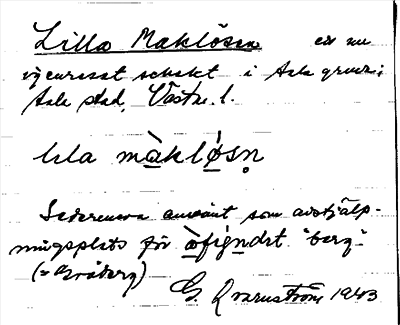 Lilla Maklösen ett nu
igenrasat schakt i Sala gruva;
Sala stad, Västm. l.
lila màklósn̥
Sedermera använt som avstjälp-
ningsplats för òfigndrt "berg"
(= Gråberg)
G. Qvarnström 1943